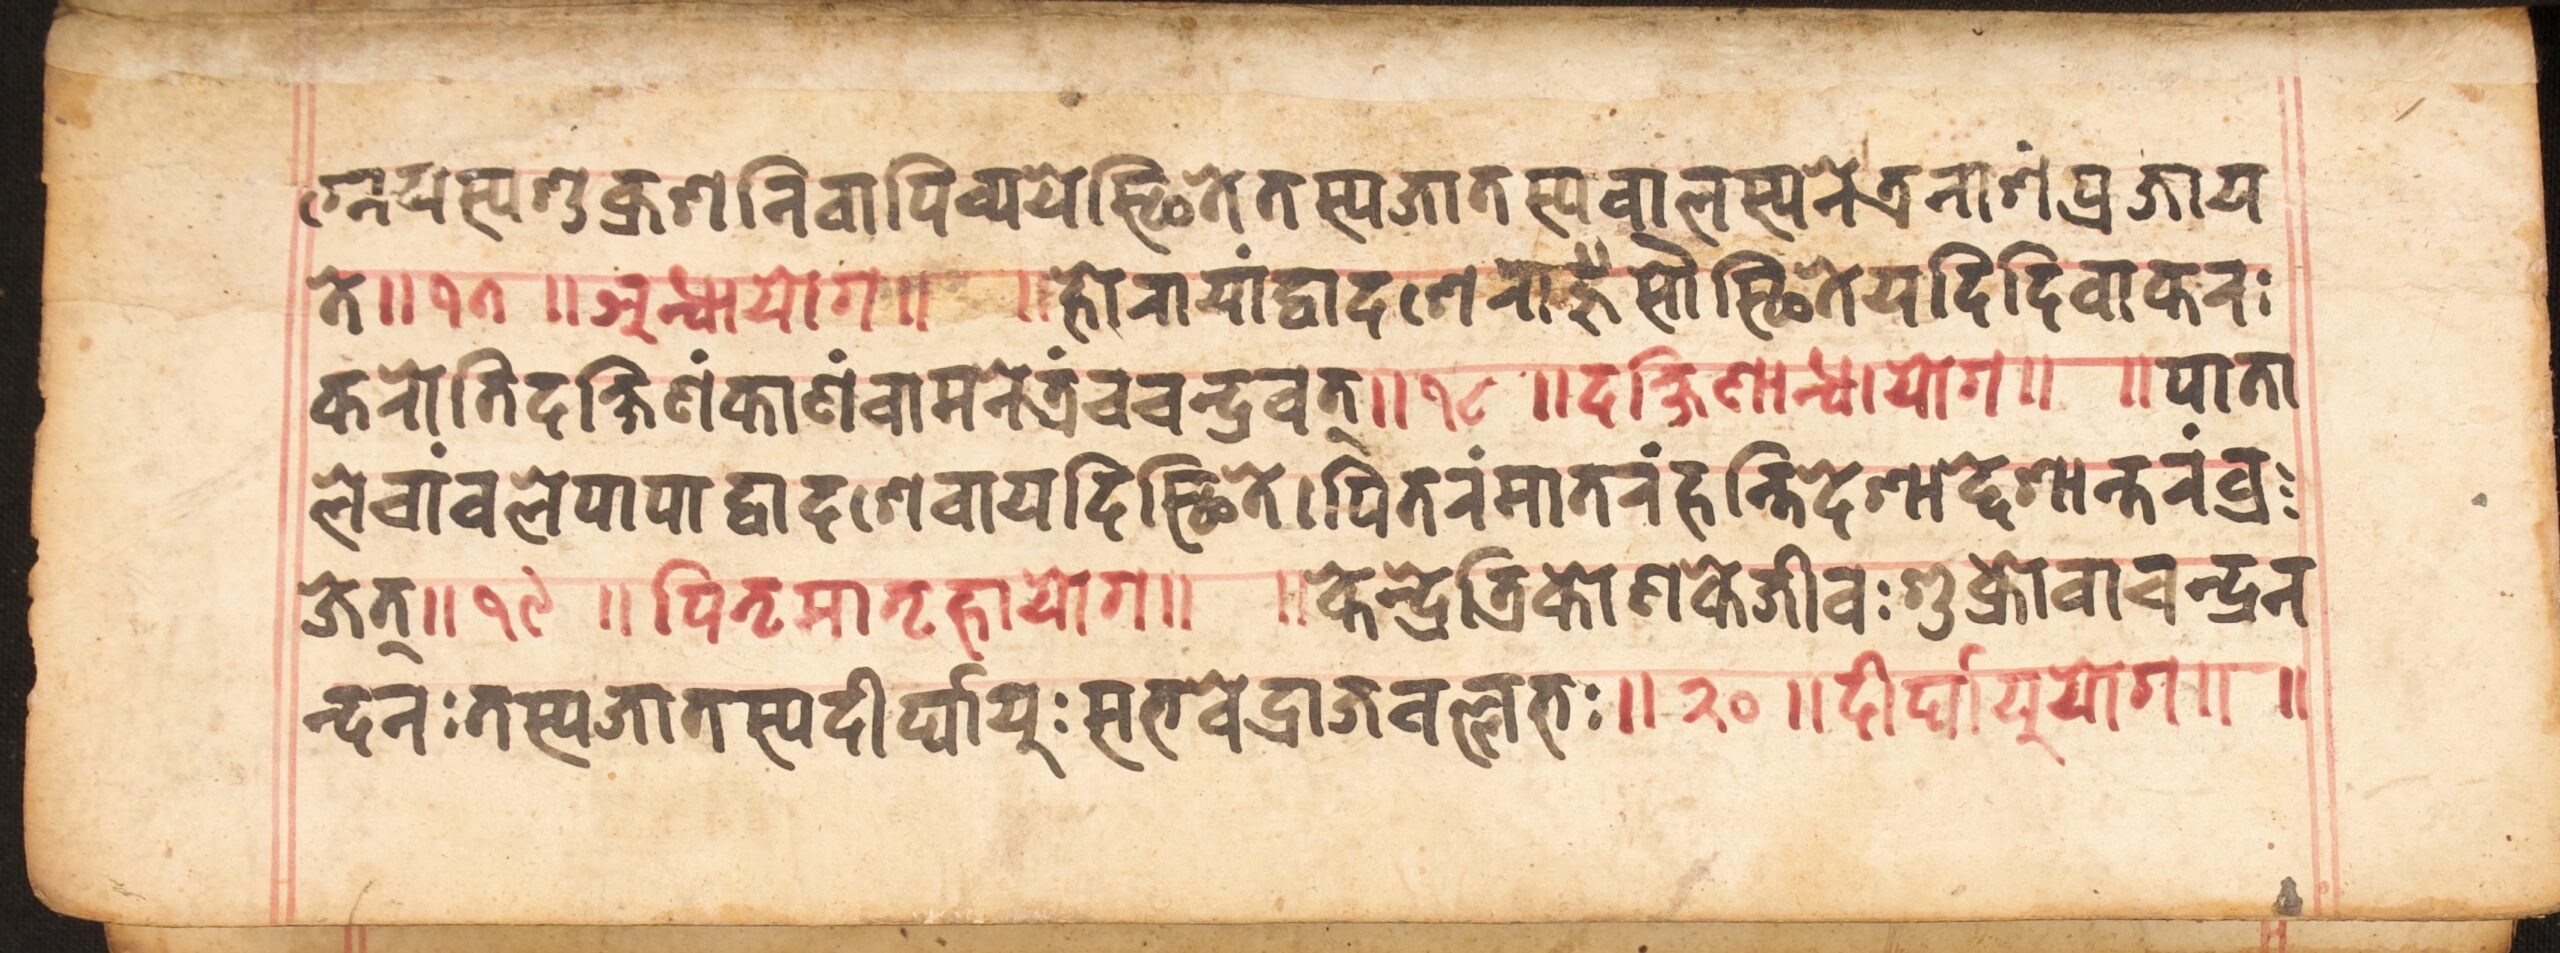 ग्नेयस्य शुक्रशनिवापि व्यये स्थिते तस्य जातस्य वालस्य नेत्रनाशं प्रजाय
ते ॥ १७ ॥ अन्धायोग ॥ ॥ होरायां द्वादशे राहुँ सौ स्थिते यदि दिवाकरः
करोति दक्षिणं काणं वामनेत्रं च चन्द्रवत् ॥ १८ ॥ दक्षिणान्धायोग ॥ ॥ पाता
ले चांवले पापा द्वादशे वा यदि स्थिते । पितरं मातरं हन्ति देशाद्देशान्तरं व्र
जेत् ॥ १९ ॥ पितृमातृहायोग ॥ ॥ केन्द्रे त्रिकोणके जीवः शुक्रो वा चन्द्रन
न्दनः तस्य जातस्य दीर्घायुः स भवेद्राजवल्लभः ॥ २० ॥ दीर्घायुयोग ॥ ॥